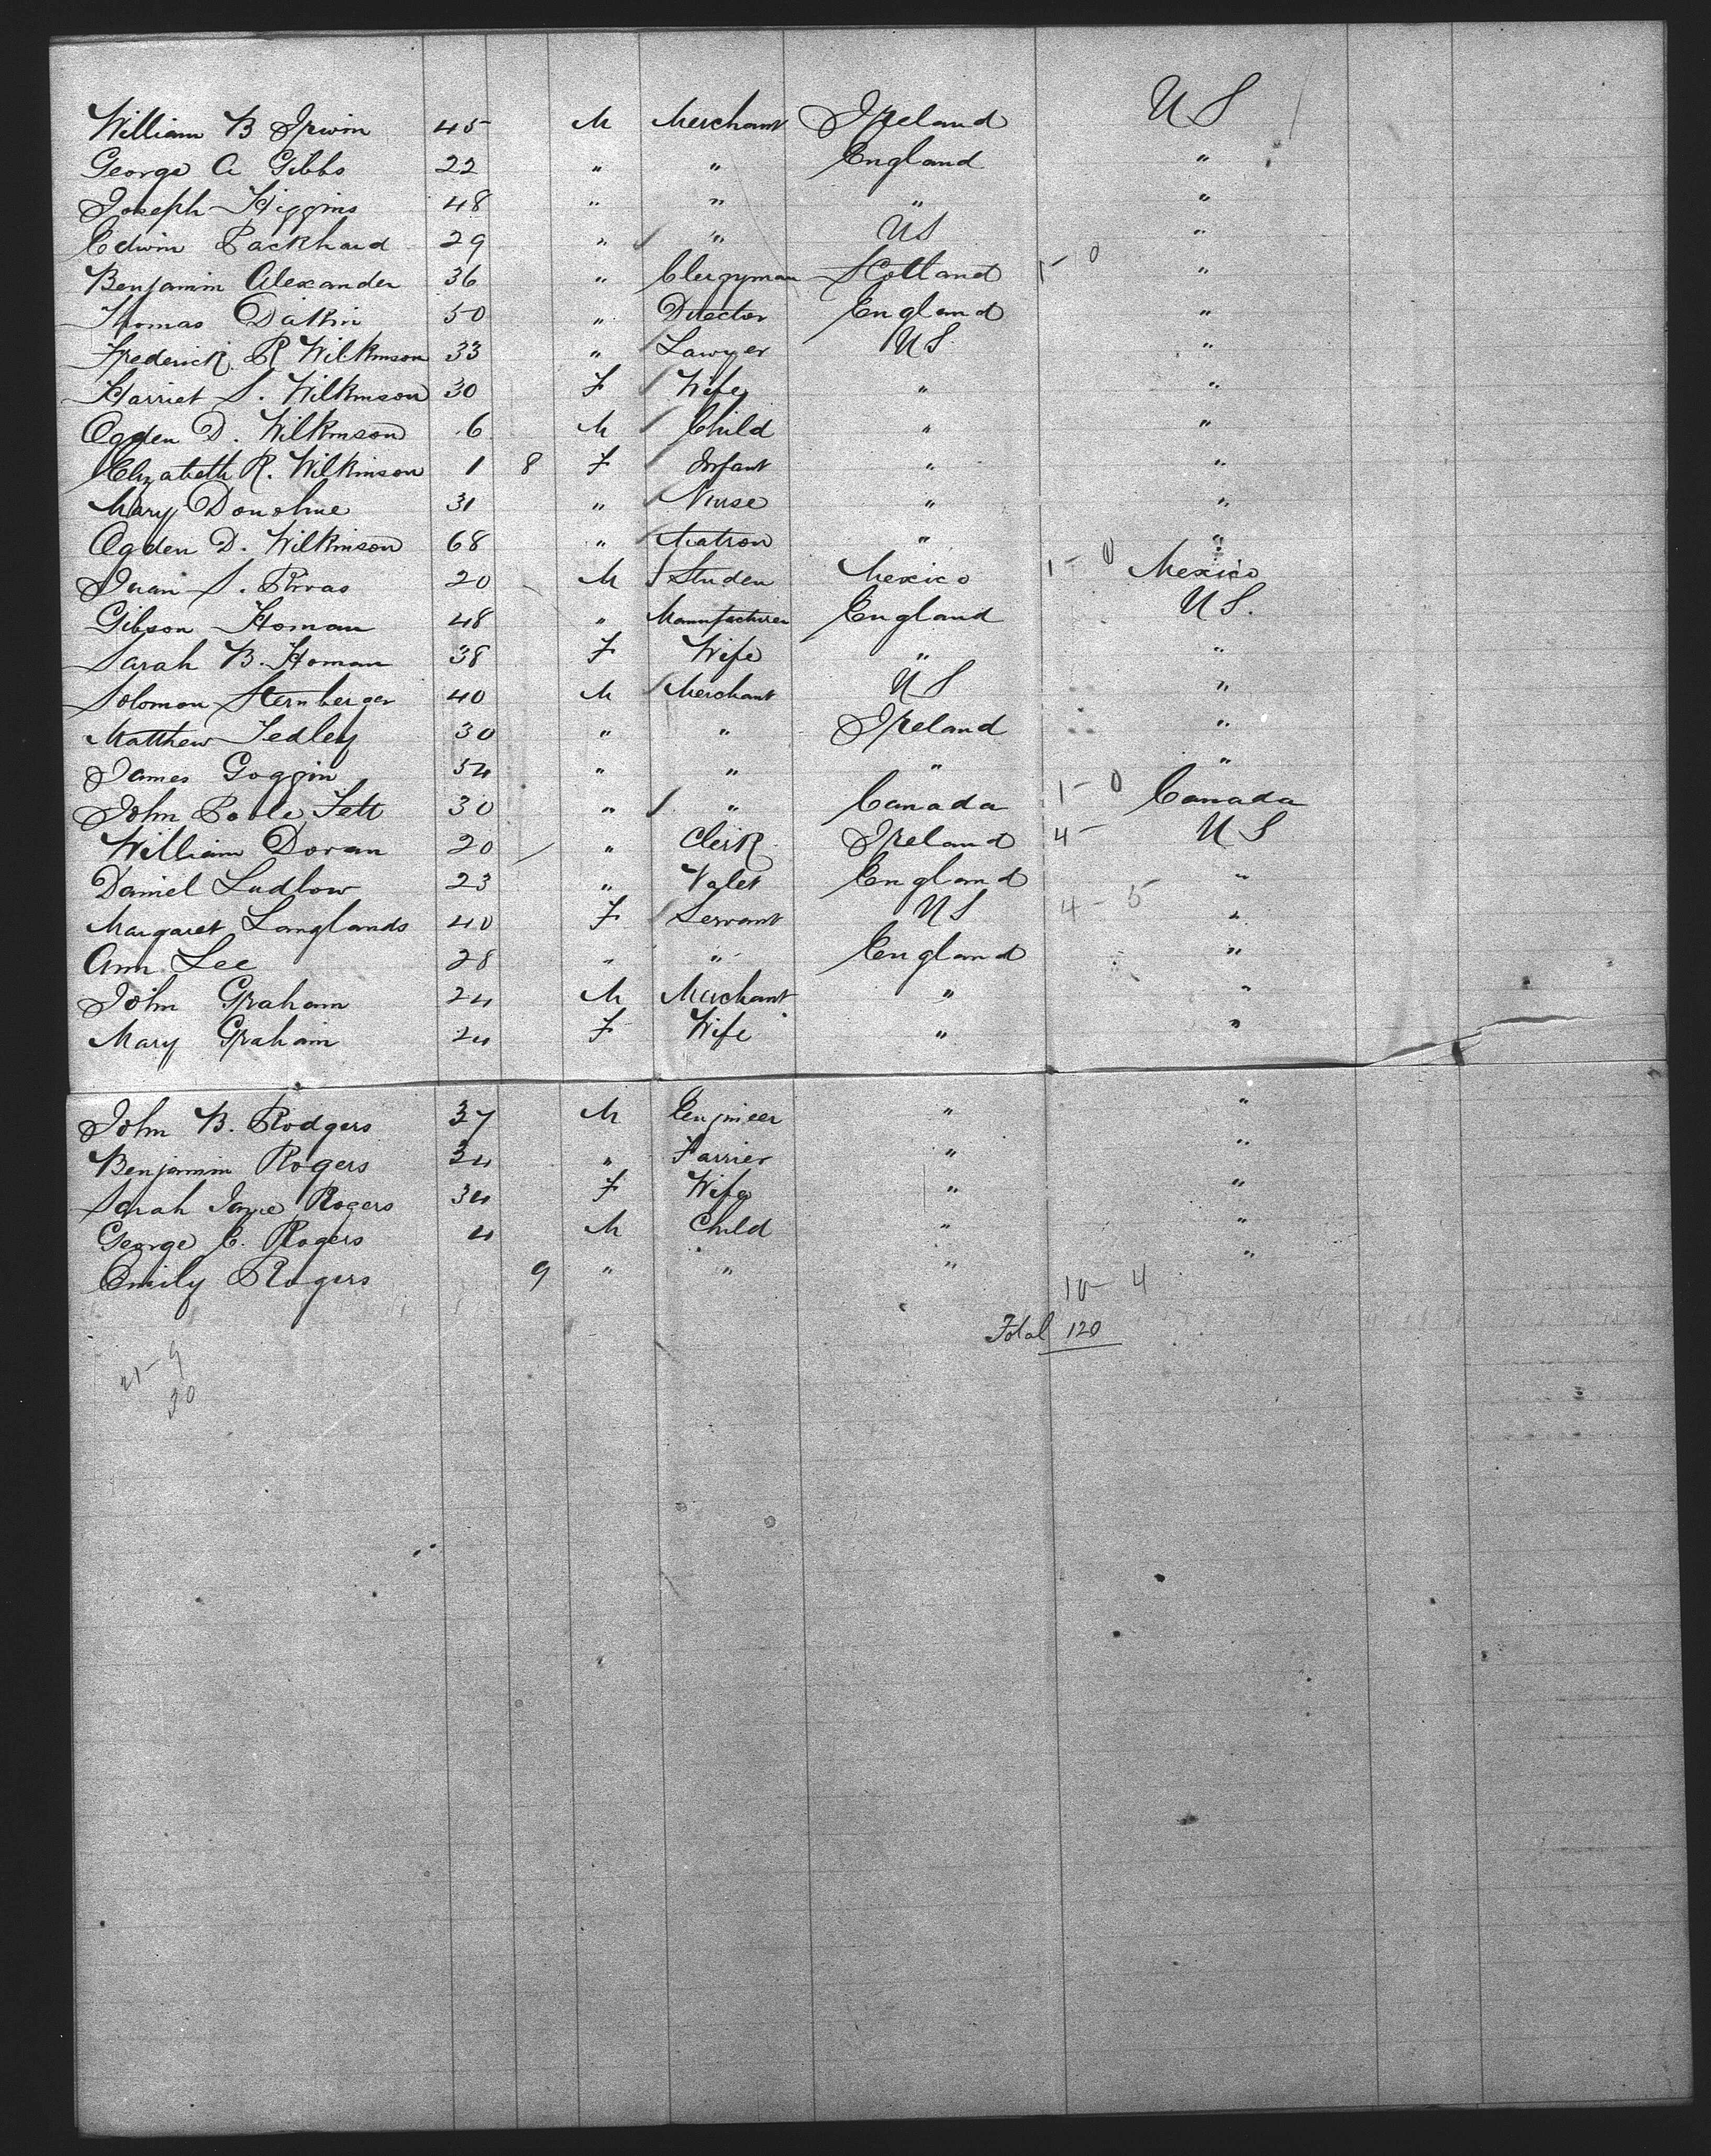 William B Irwin 45 M Merchant Ireland U S
George A Gibbs 22 " " England "
Joseph Higgins 48 " " " "
Edwin Packhard 29 " " US "
Benjamin Alexander 36 " Clergyman Scotland 1-0 "
Thomas Dakin 50 " Director England "
Frederick R Wilkinson 33 " Lawyer US "
Harriet S. Wilkinson 30 F Wife " "
Ogden D. Wilkinson 6 M Child " "
Elizabeth R. Wilkinson 1 8 F Infant " "
Mary Donohue 31 " Nurse " "
Ogden D. Wilkinson 68 " Matron " "
Juan S. Rivas 20 M Studen Mexico 1-0 Mexico
Gibson Homan 48 " Manufacturer England US.
Sarah B. Homan 38 F Wife " "
Solomon Sternberger 40 M Merchant US "
Matthew Tedley 30 " " Ireland "
James Goggin 54 " " " "
John Poole Tett 30 " " Canada 1-0 Canada
William Doran 20 " Clerk Ireland 4- US
Daniel Ludlow 23 " Valet England "
Margaret Langlands 40 F Servant US 4-5 "
Ann Lee 28 " " England "
John Graham 24 M Merchant " "
Mary Graham 24 F Wife " "
John B. Rodgers 37 M Engineer " "
Benjamin Rogers 34 " Farrier " "
Sarah Jane Rogers 34 F Wife " "
George C. Rogers 4 M Child " "
Emily Rogers 9 " " " "
10-4
Total 120
21-9
30